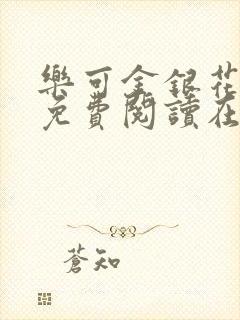 樂可金銀花
免費閱讀在
蒼知